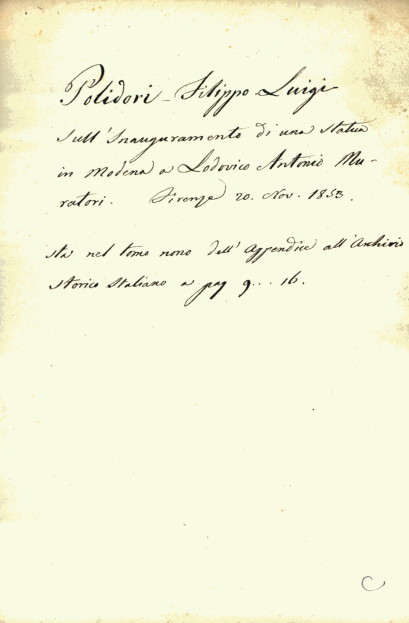 Polidori - Filippo Luigi
Sull'Inauguramento di una statua
in Modena a Lodovico Antonio Mu-
ratori. Firenze 20. Nov. 1853.
sta nel tomo nono dell'Appendice all'Archivio
storico Italiano a pag 9... 16.